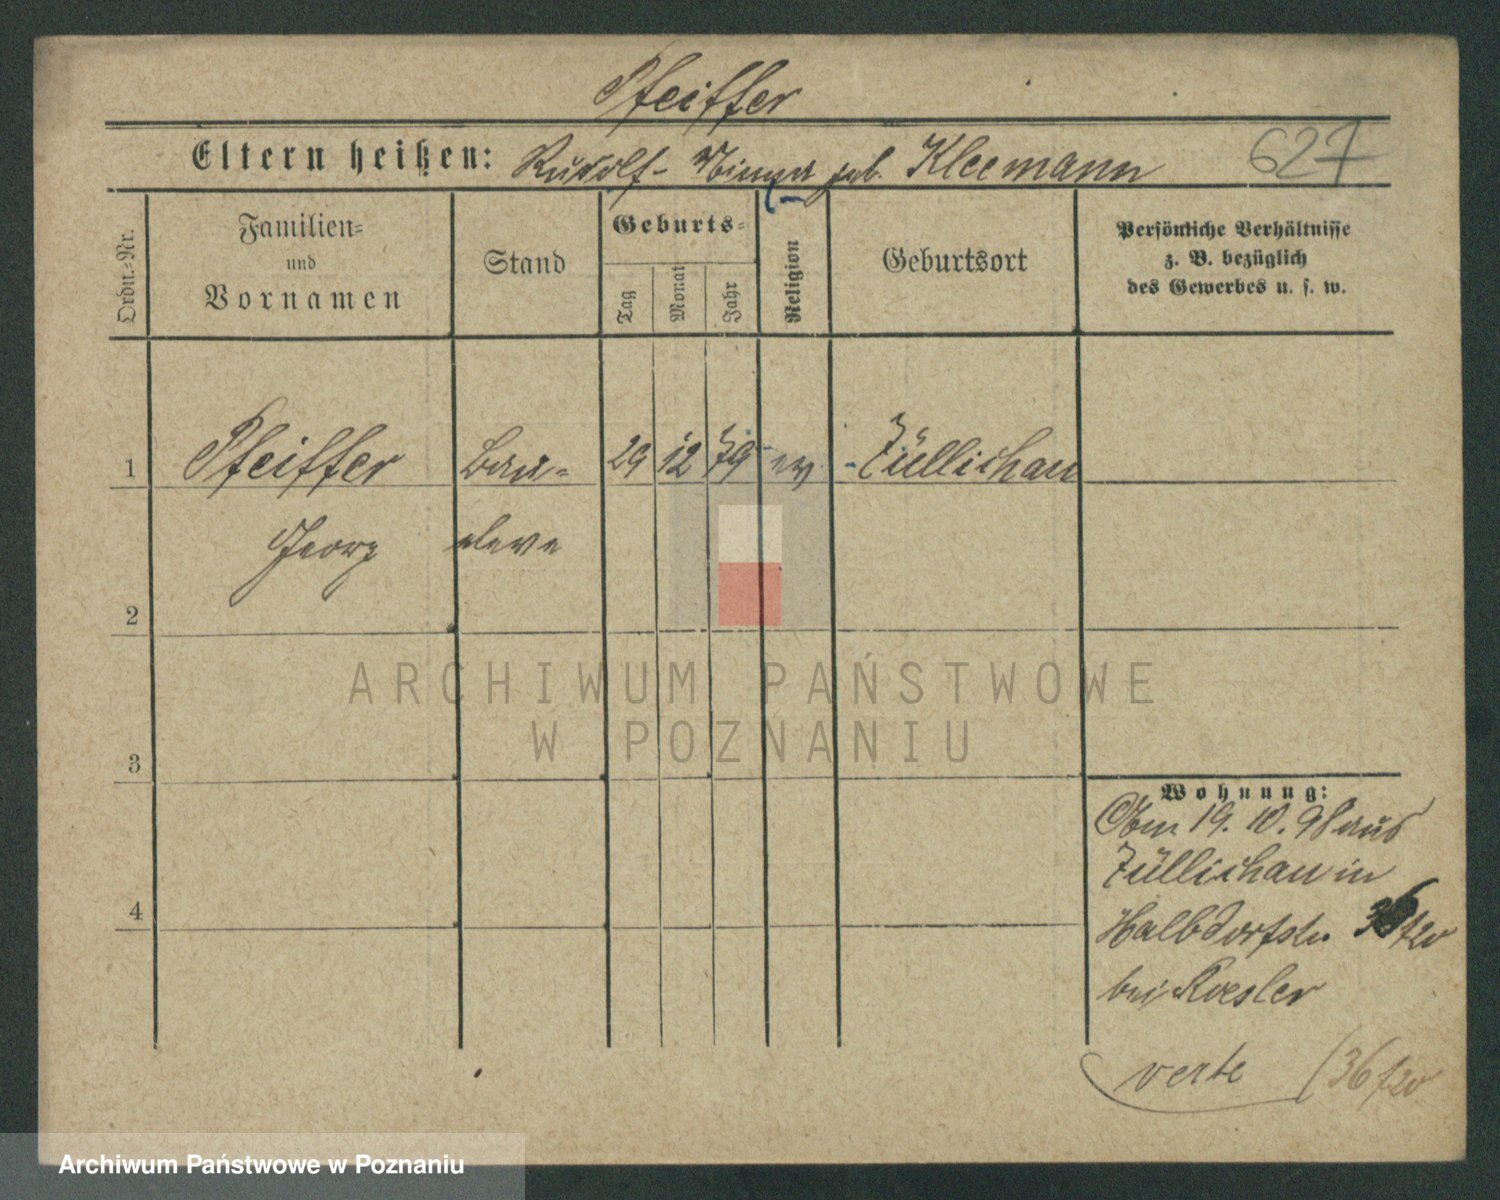 Pfeiffer
Eltern heißen: Rudolf - Minna geb. Kleemann 627
Ordn.-Nr.
Familien-
und
Vornamen
Stand
Geburts-
Tag
Monat
Jahr
Religion
Geburtsort
Persönliche Verhältnisse
z. B. bezüglich
des Gewerbes u. s. w.
1 Pfeiffer Bau- 29 12 79 ev Züllichau
Georg eleve
2
ARCHIWUM PAŃSTWOWE
W POZNANIU
3
Wohnung:
Am 19. 10. 98 aus
Züllichau in
4
Halbdorfstr. 36
bei Roesler
verte 36
Archiwum Państwowe w Poznaniu